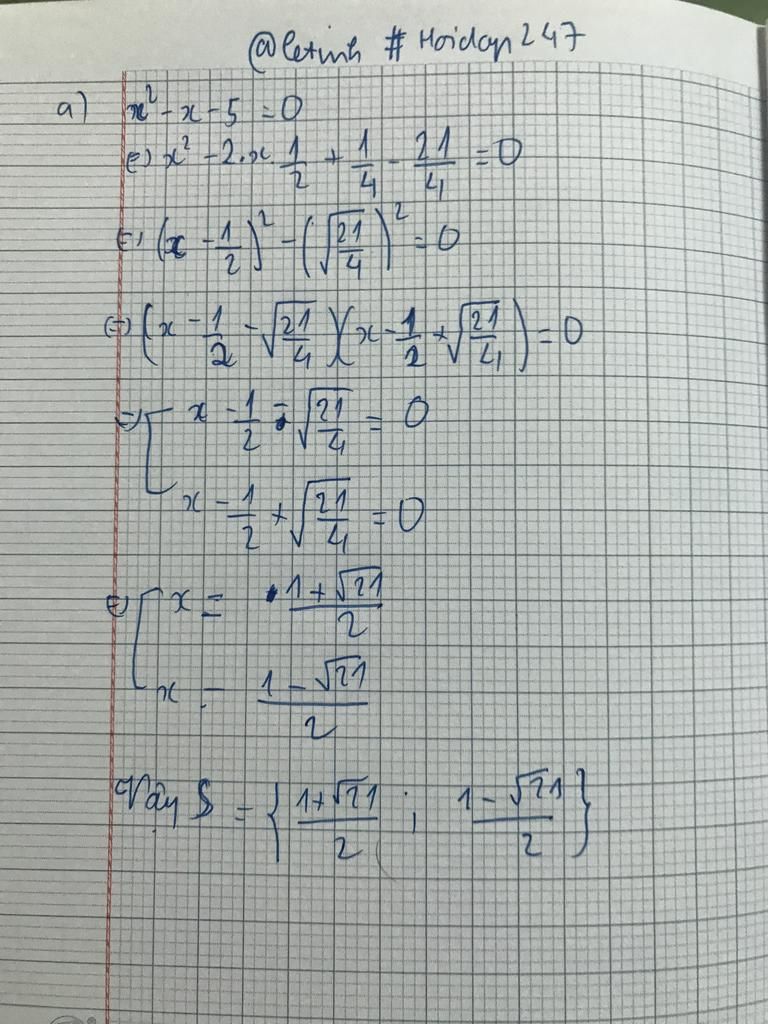 @letinh # Hoidap247
a) x² - x - 5 = 0
⇔ x² - 2.x.1/2 + 1/4 - 21/4 = 0
⇔ (x - 1/2)² - (√(21/4))² = 0
⇔ (x - 1/2 - √(21/4))(x - 1/2 + √(21/4)) = 0
⇔ [ x - 1/2 - √(21/4) = 0
x - 1/2 + √(21/4) = 0
⇔ [ x = (1 + √21)/2
x = (1 - √21)/2
Vậy S = { (1+√21)/2 ; (1 - √21)/2 }